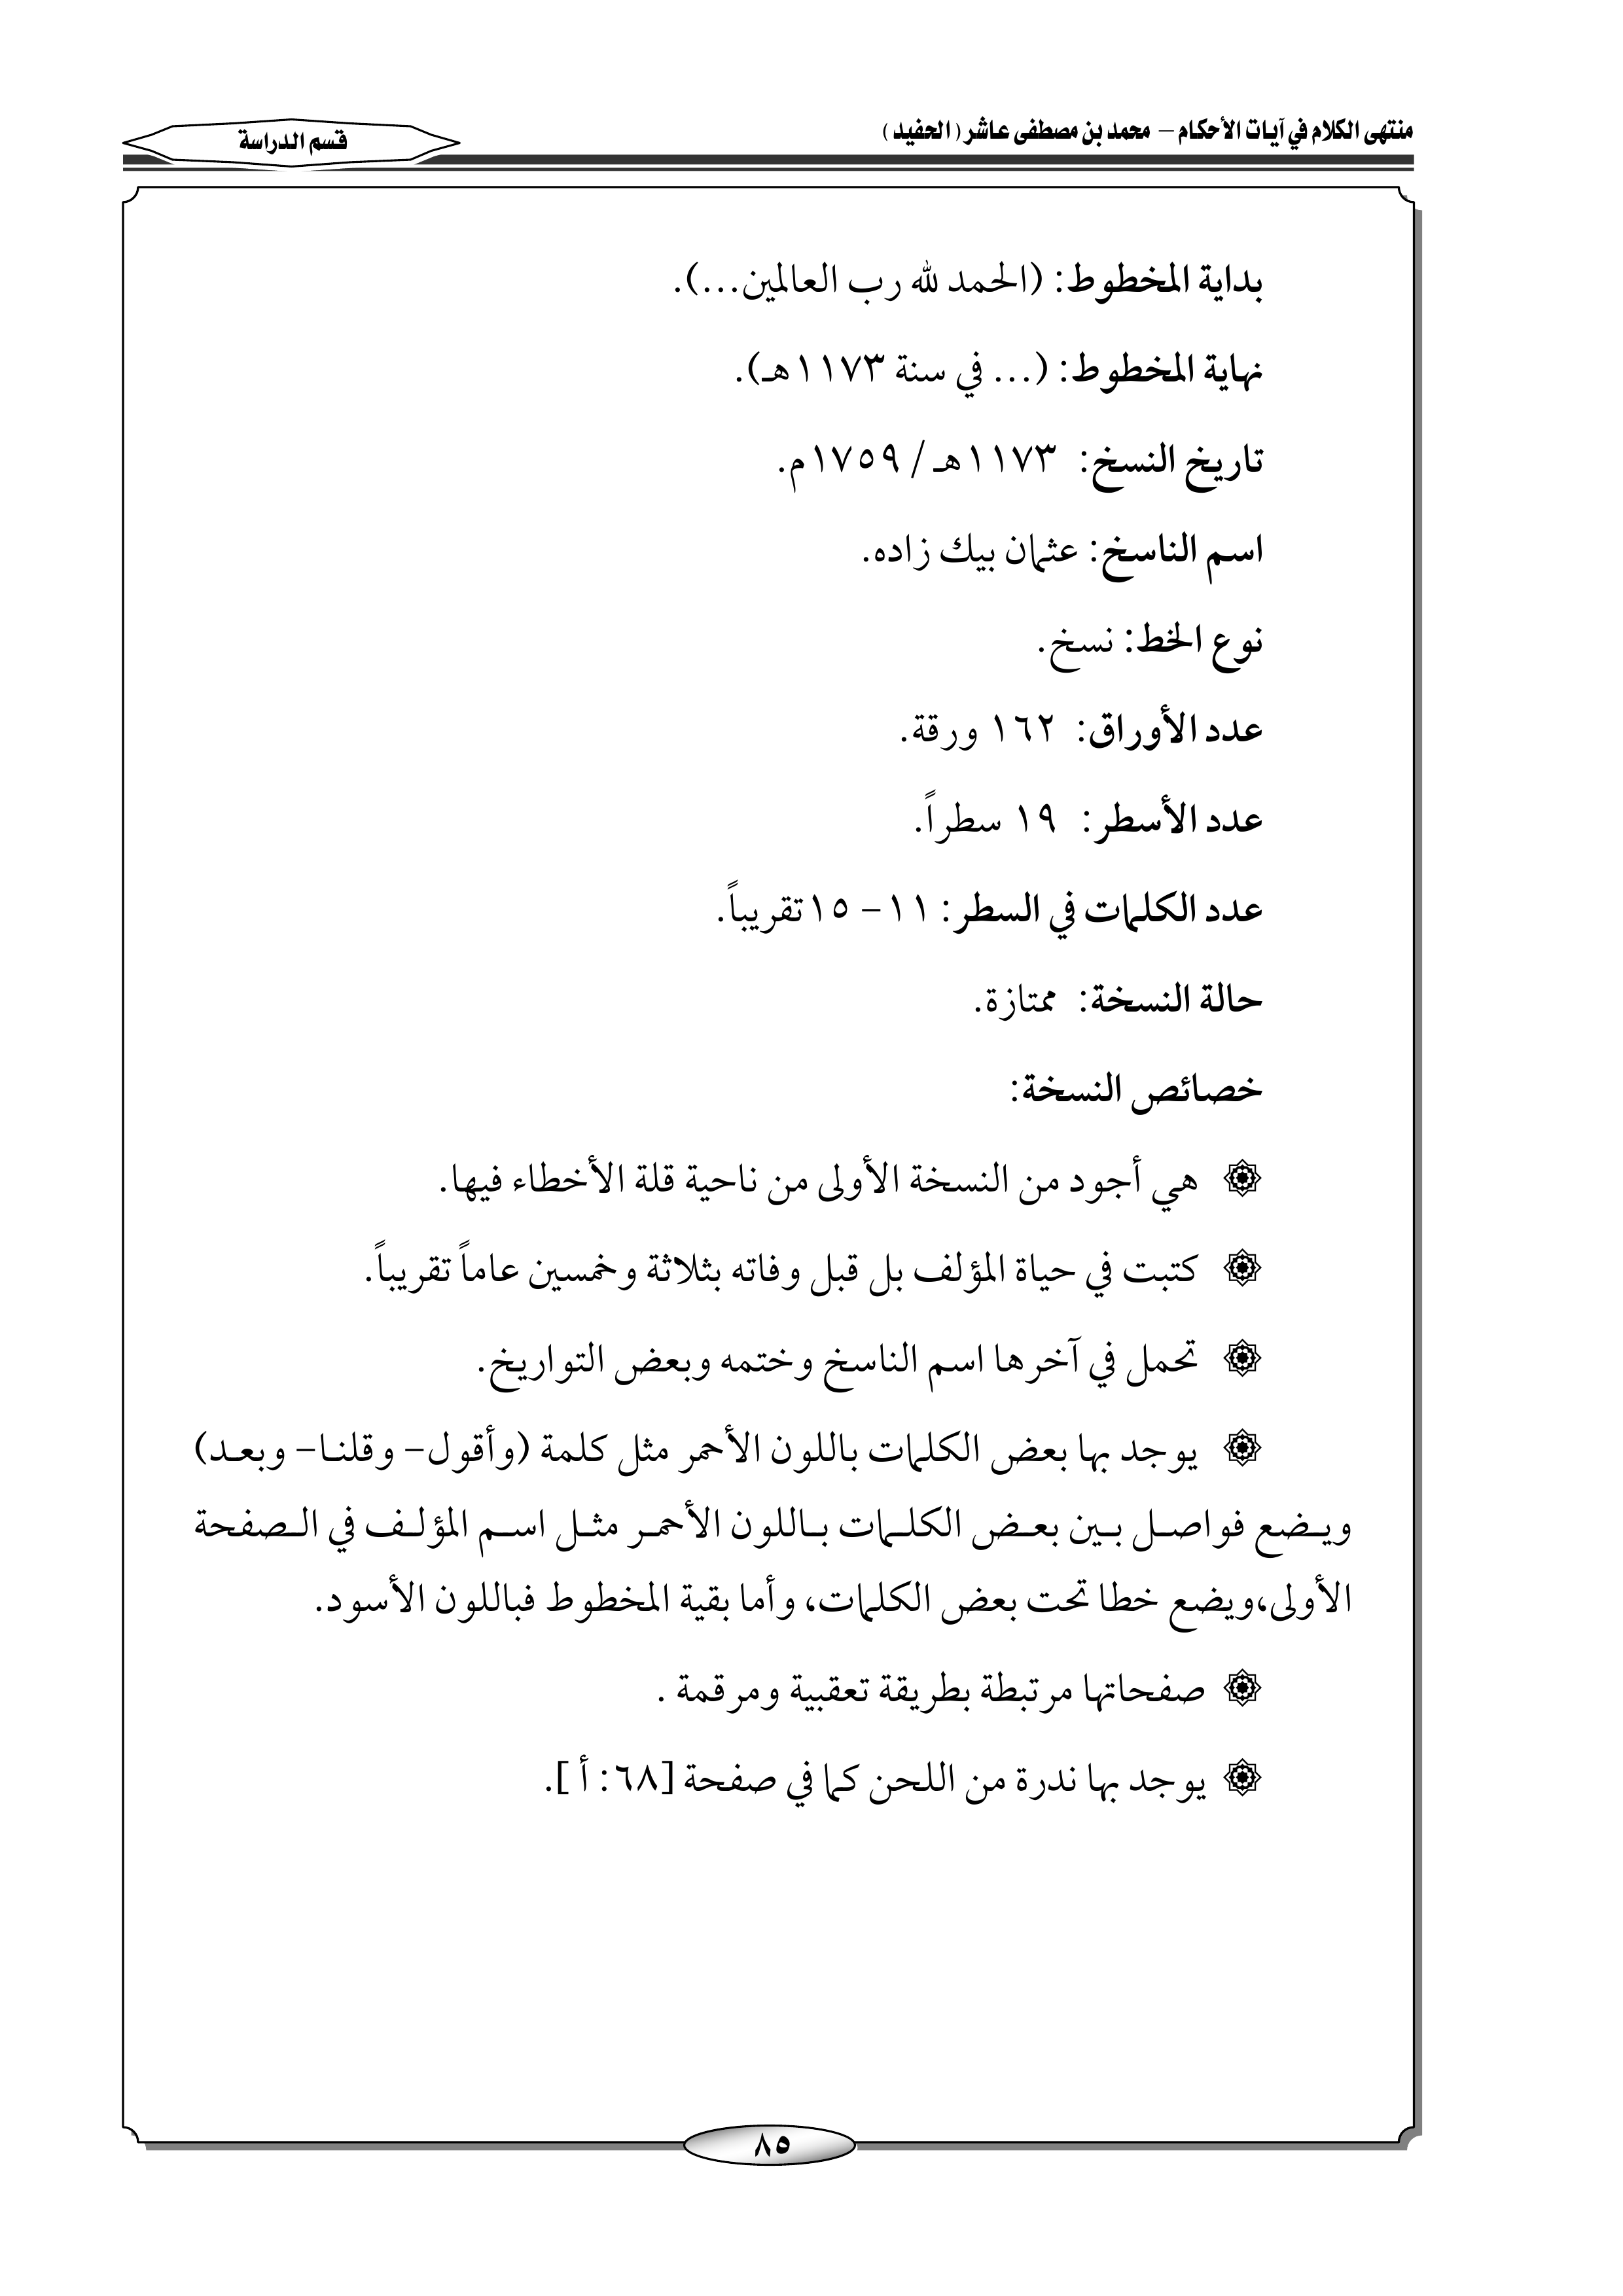 منتهى الكلام في آيات الأحكام – محمد بن مصطفى عاشر ( الحفيد )
قسم الدراسة
بداية المخطوط: (الحمد لله رب العالمين...).
نهاية المخطوط: (... في سنة ١١٧٣هـ).
تاريخ النسخ: ١١٧٣هـ / ١٧٥٩م.
اسم الناسخ: عثمان بيك زاده.
نوع الخط: نسخ.
عدد الأوراق: ١٦٢ ورقة.
عدد الأسطر: ١٩ سطراً.
عدد الكلمات في السطر: ١١– ١٥ تقريباً.
حالة النسخة: ممتازة.
خصائص النسخة:
هي أجود من النسخة الأولى من ناحية قلة الأخطاء فيها.
كتبت في حياة المؤلف بل قبل وفاته بثلاثة وخمسين عاماً تقريباً.
تحمل في آخرها اسم الناسخ وختمه وبعض التواريخ.
يوجد بها بعض الكلمات باللون الأحمر مثل كلمة (وأقول– وقلنا– وبعد)
ويضع فواصل بين بعض الكلمات باللون الأحمر مثل اسم المؤلف في الصفحة
الأولى،ويضع خطا تحت بعض الكلمات، وأما بقية المخطوط فباللون الأسود.
صفحاتها مرتبطة بطريقة تعقبية ومرقمة .
يوجد بها ندرة من اللحن كما في صفحة [٦٨: أ ].
٨٥